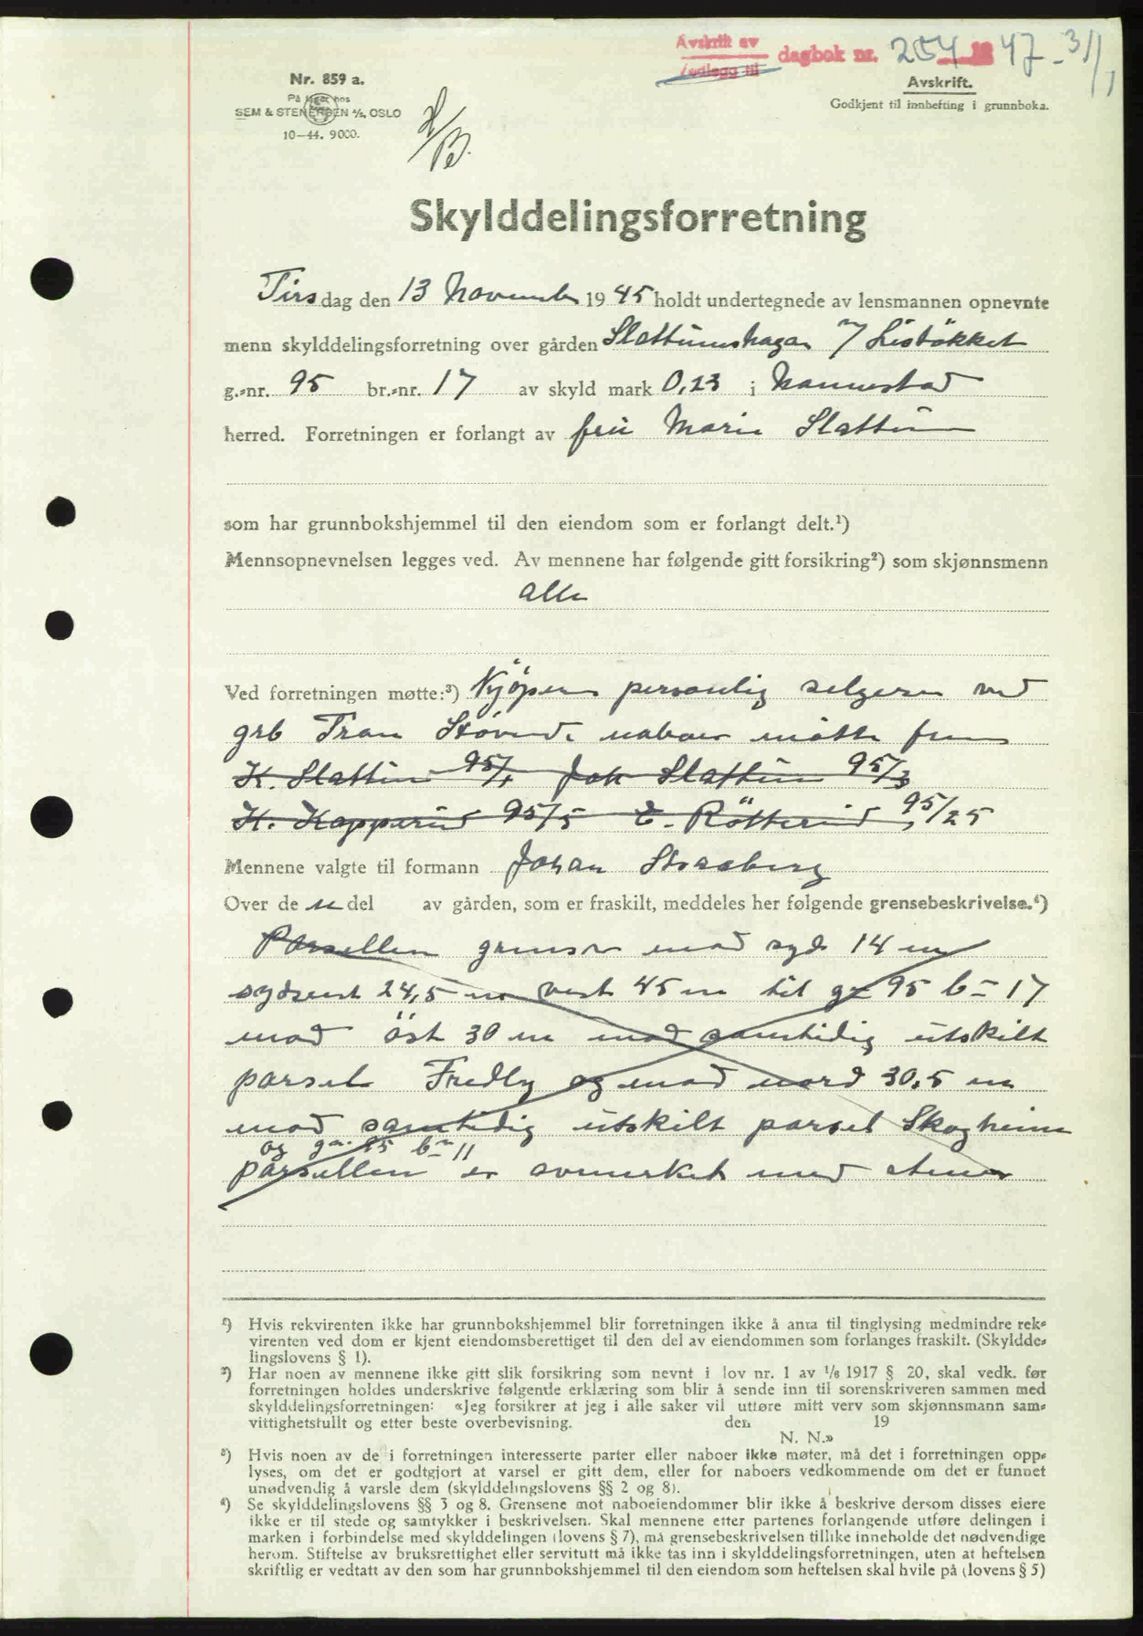 Avskrift av
Innlegg til dagbok nr. 254 1947-31/1
Nr. 859 a.
På lager hos
SEM & STENERSEN A/S, OSLO
10-44. 9000.
Avskrift.
Godkjent til innhefting i grunnboka.
Skylddelingsforretning
Tirsdag den 13 November 1945 holdt undertegnede av lensmannen opnevnte
menn skylddelingsforretning over gården Slattumshagan m/ Lisbökket
g.-nr. 95 br.-nr. 17 av skyld mark 0,23 i Nannestad
herred. Forretningen er forlangt av fru Marie Slattum
som har grunnbokshjemmel til den eiendom som er forlangt delt.¹)
Mennsopnevnelsen legges ved. Av mennene har følgende gitt forsikring²) som skjønnsmenn
alle
Ved forretningen møtte:³) Kjöperen personlig selgeren ved
grb Fran Stövind. naboer møtte frem
K. Slattum 95/1 Joh Slattum 95/3
H. Kopperud 95/5 E. Rötterud, 95/25
Mennene valgte til formann Johan Strasberg
Over de n del av gården, som er fraskilt, meddeles her følgende grensebeskrivelse.⁴)
Parsellen grenser mod syd 14 m
sydvest 24,5 m vest 45 m til gn 95 bn 17
mod öst 30 m mod samtidig utskilt
parsel Fredly og mod nord 30,5 m
mod samtidig utskilt parsel Skogheim
og gn. 95 bn 11
parsellen er avmerket med stener
¹) Hvis rekvirenten ikke har grunnbokshjemmel blir forretningen ikke å anta til tinglysing medmindre rek-
virenten ved dom er kjent eiendomsberettiget til den del av eiendommen som forlanges fraskilt. (Skyldde-
lingslovens § 1).
²) Har noen av mennene ikke gitt slik forsikring som nevnt i lov nr. 1 av 1/6 1917 § 20, skal vedk. før
forretningen holdes underskrive følgende erklæring som blir å sende inn til sorenskriveren sammen med
skylddelingsforretningen: «Jeg forsikrer at jeg i alle saker vil utføre mitt verv som skjønnsmann sam-
vittighetsfullt og etter beste overbevisning. den 19
N. N.»
³) Hvis noen av de i forretningen interesserte parter eller naboer ikke møter, må det i forretningen opp-
lyses, om det er godtgjort at varsel er gitt dem, eller for naboers vedkommende om det er funnet
unødvendig å varsle dem (skylddelingslovens §§ 2 og 8).
⁴) Se skylddelingslovens §§ 3 og 8. Grensene mot naboeiendommer blir ikke å beskrive dersom disses eiere
ikke er til stede og samtykker i beskrivelsen. Skal mennene etter partenes forlangende utføre delingen i
marken i forbindelse med skylddelingen (lovens § 7), må grensebeskrivelsen tillike inneholde det nødvendige
herom. Stiftelse av bruksrettighet eller servitutt må ikke tas inn i skylddelingsforretningen, uten at heftelsen
skriftlig er vedtatt av den som har grunnbokshjemmel til den eiendom som heftelsen skal hvile på (lovens § 5)